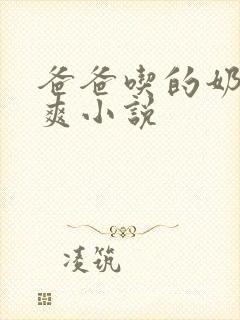 爸爸喫的奶
爽小説
凌筑